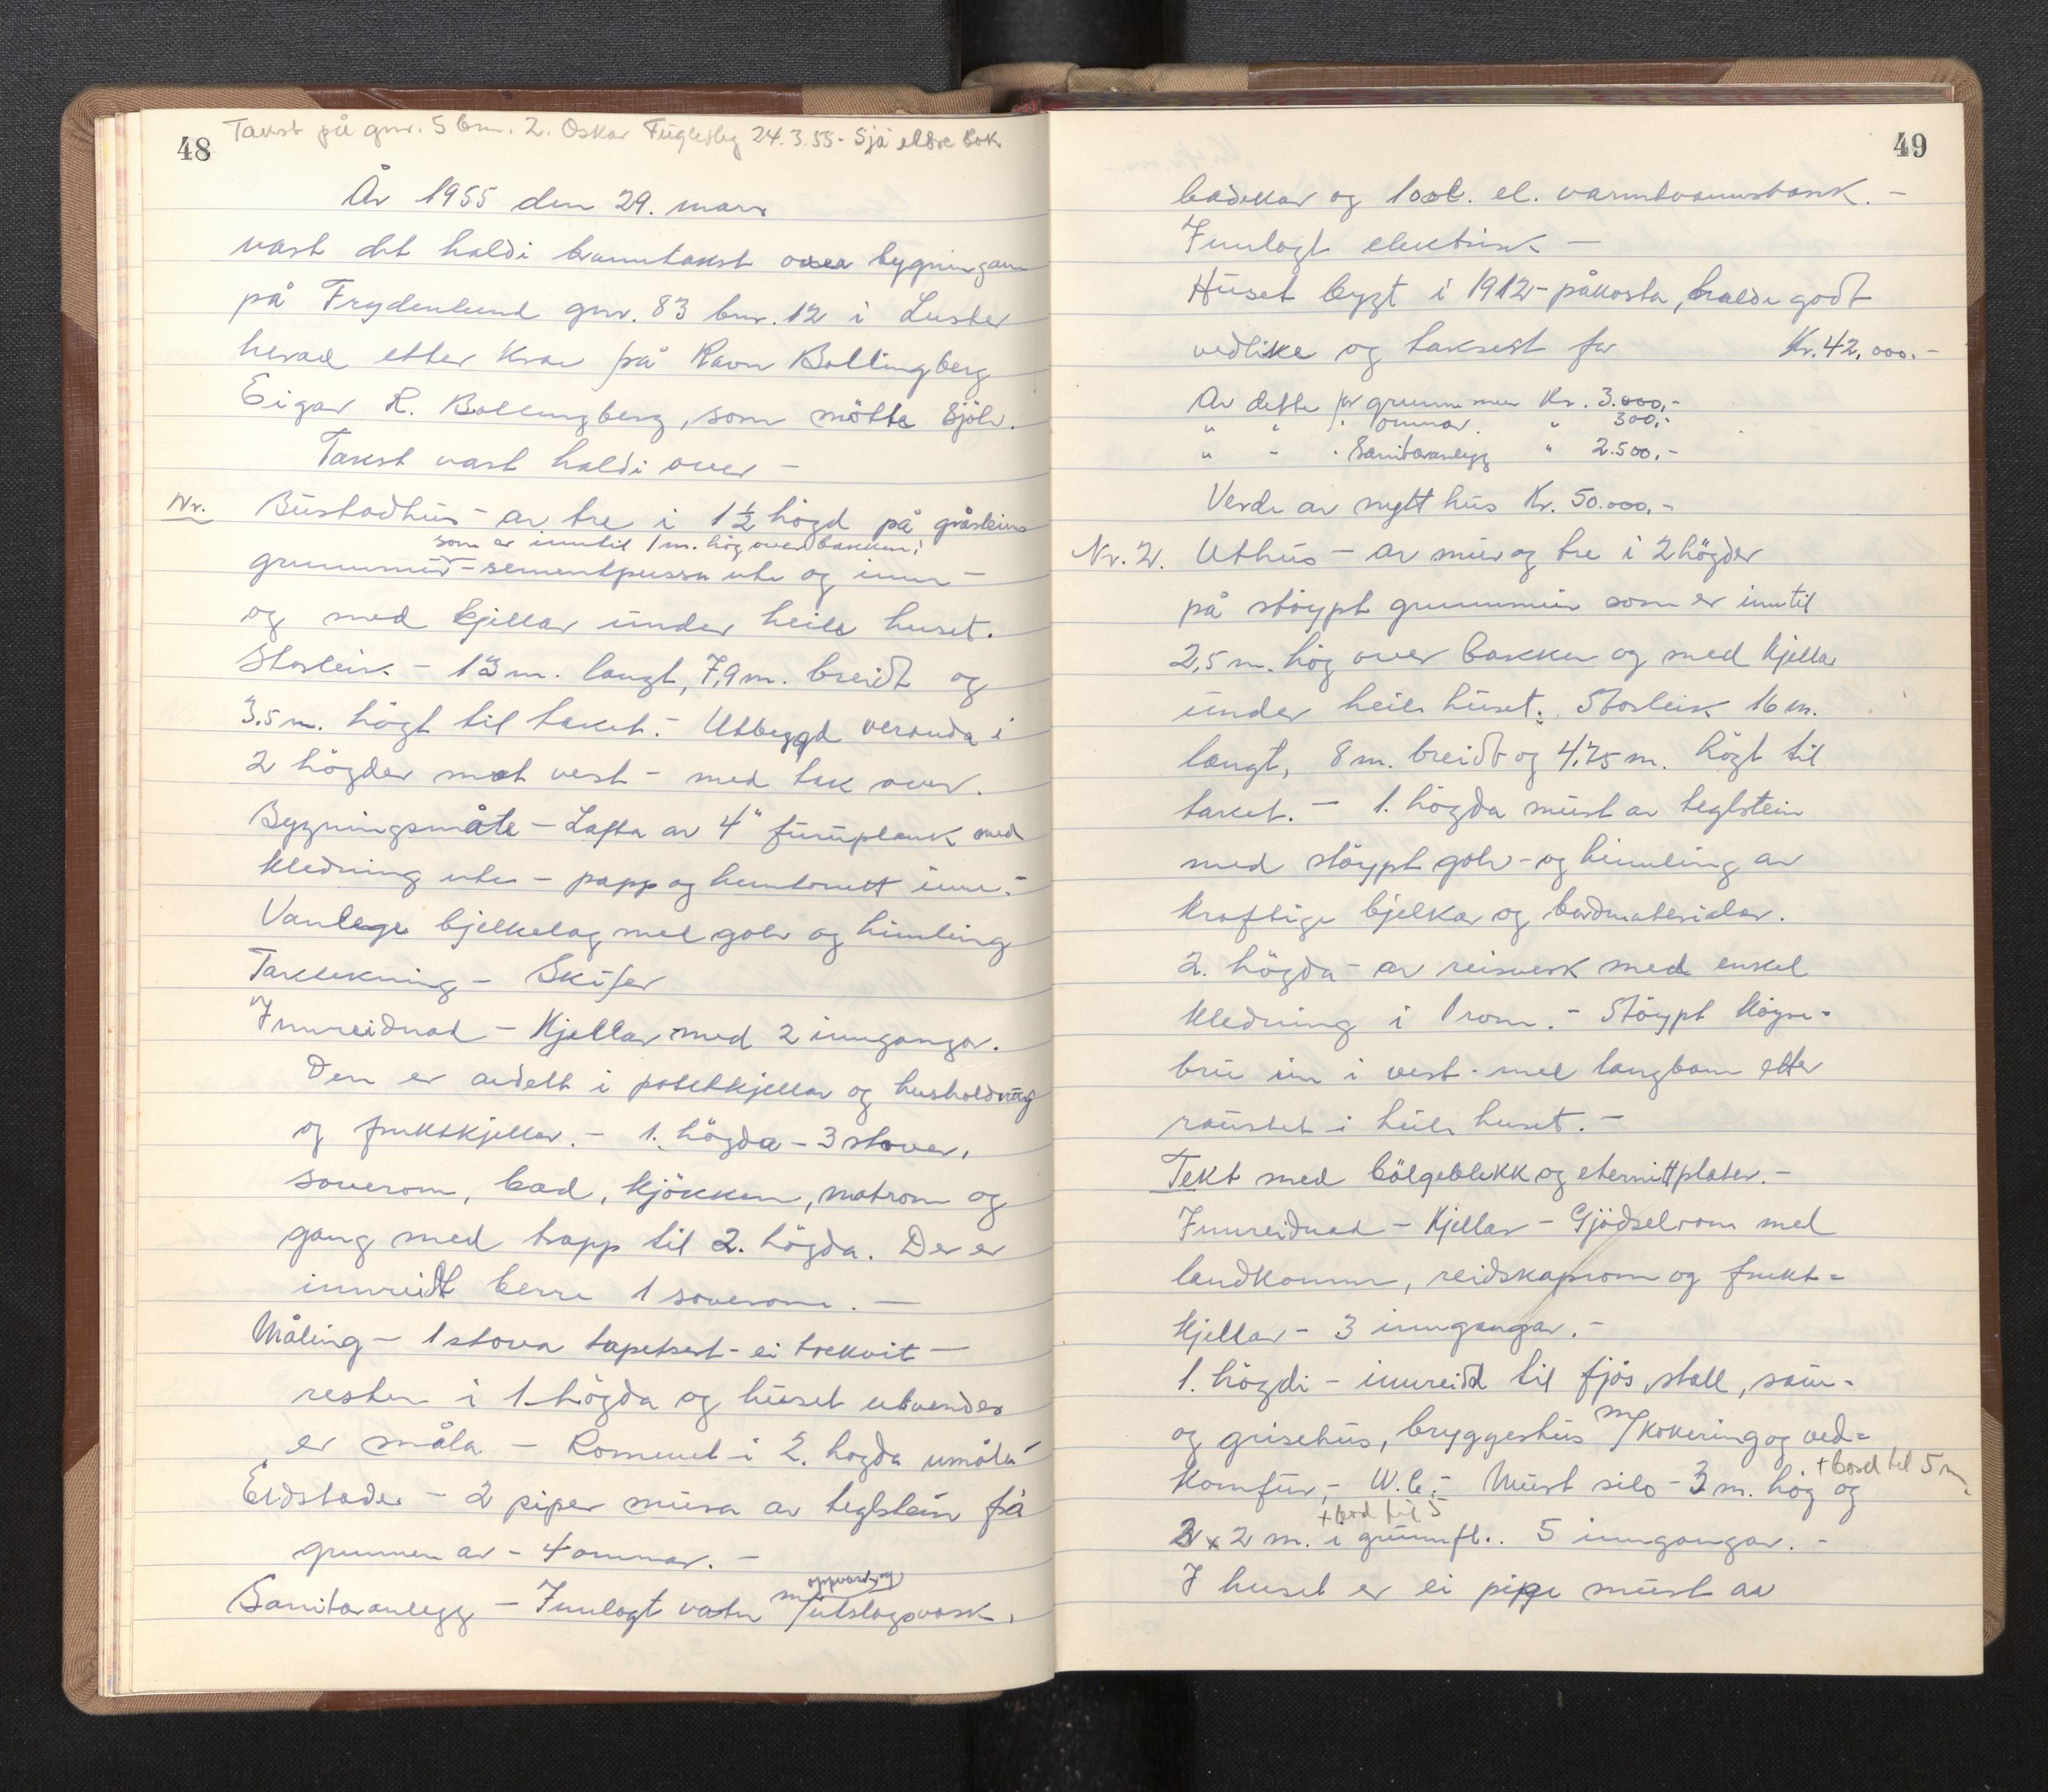 48
Takst på gnr. 5 bnr. 2. Oskar Fuglesteg 24.3.55 - Sjå eldre bok
År 1955 den 29. mars
vart det haldi branntakst over bygningane
på Frydenlund gnr. 83 bnr. 12 i Luster
herad etter krav frå Ravn Bollingberg
Eigar R. Bollingberg, som møtte sjölv.
Takst vart haldi over -
Nr. Bustadhus - av tre i 1 1/2 högd på gråsteins
som er inntil 1 m. hög over bakken,
grunnmur - sementpussa ute og inne -
og med kjellar under heile huset.
Storleik - 13 m. langt, 7,9 m. breidt og
3.5 m. högt til taket. - Utbygd veranda i
2 högder mot vest - med tak over.
Bygningsmåte - Lafta av 4" furuplank med
kledning ute - papp og huntonitt inne. -
Vanlege bjelkelag med golv og himling
Taktekning - Skifer
Innreidnad - Kjellar med 2 inngangar.
Den er avdelt i potetkjellar og husholdning
og fruktkjellar. - 1. högda - 3 stover,
soverom, bad, kjökken, matrom og
gang med trapp til 2. högda. Der er
innreidt berre 1 soverom. -
Måling - 1 stova tapetsert - ei trekvit -
resten i 1. högda og huset utvendes
er måla - Rommet i 2. högda umåla
Eldstader - 2 piper mura av teglstein frå
grunnen av - 4 omnar. -
oppvask og
Sanitæranlegg - Innlagt vatn m/utslagsvask,
49
badekar og 100 l. el. varmtvannstank. -
Innlagt elektrisk -
Huset bygt i 1912 - påkosta, haldi godt
vedlike og taksert for Kr. 42,000.-
Av dette for grunnmur Kr. 3.000,-
" " " omnar. " 300,-
" " " Sanitæranlegg " 2.500.-
Verdi av nytt hus Kr. 50.000.-
Nr. 2. Uthus - av mur og tre i 2 högder
på stöypt grunnmur som er inntil
2,5 m. hög over bakken og med kjellar
under heile huset. Storleik 16 m.
langt, 8 m. breidt og 4,75 m. högt til
taket. - 1. högda murt av teglstein
med stöypt golv - og himling av
kraftige bjelkar og bordmaterialar.
2. högda - av reisverk med enkel
kledning i 1 rom. - Stöypt köyre-
bru inn i vest - med langbom etter
raustet i heile huset. -
Tekt med bölgeblekk og eternittplater. -
Innreidnad - Kjellar - Gjödselrom med
landkomm, reidskapsrom og frukt=
kjellar - 3 inngangar. -
1. högdi - innreidd til fjös, stall, sau-
og grisehus, bryggeshus m/kokering og ved=
+ bord til 5 m.
komfur, - W.C. - Murt silo - 3 m. hög og
+ bord til 5
2 x 2 m. i grunnfl.. 5 inngangar. -
I huset er ei pipe murt av